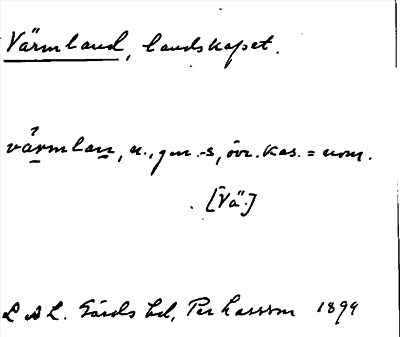 Värmland, landskapet.
värmlan, n., gen. -s, övr. kas. = nom.
[Vä.]
L A L. Gårds bd, Per Larsson 1899